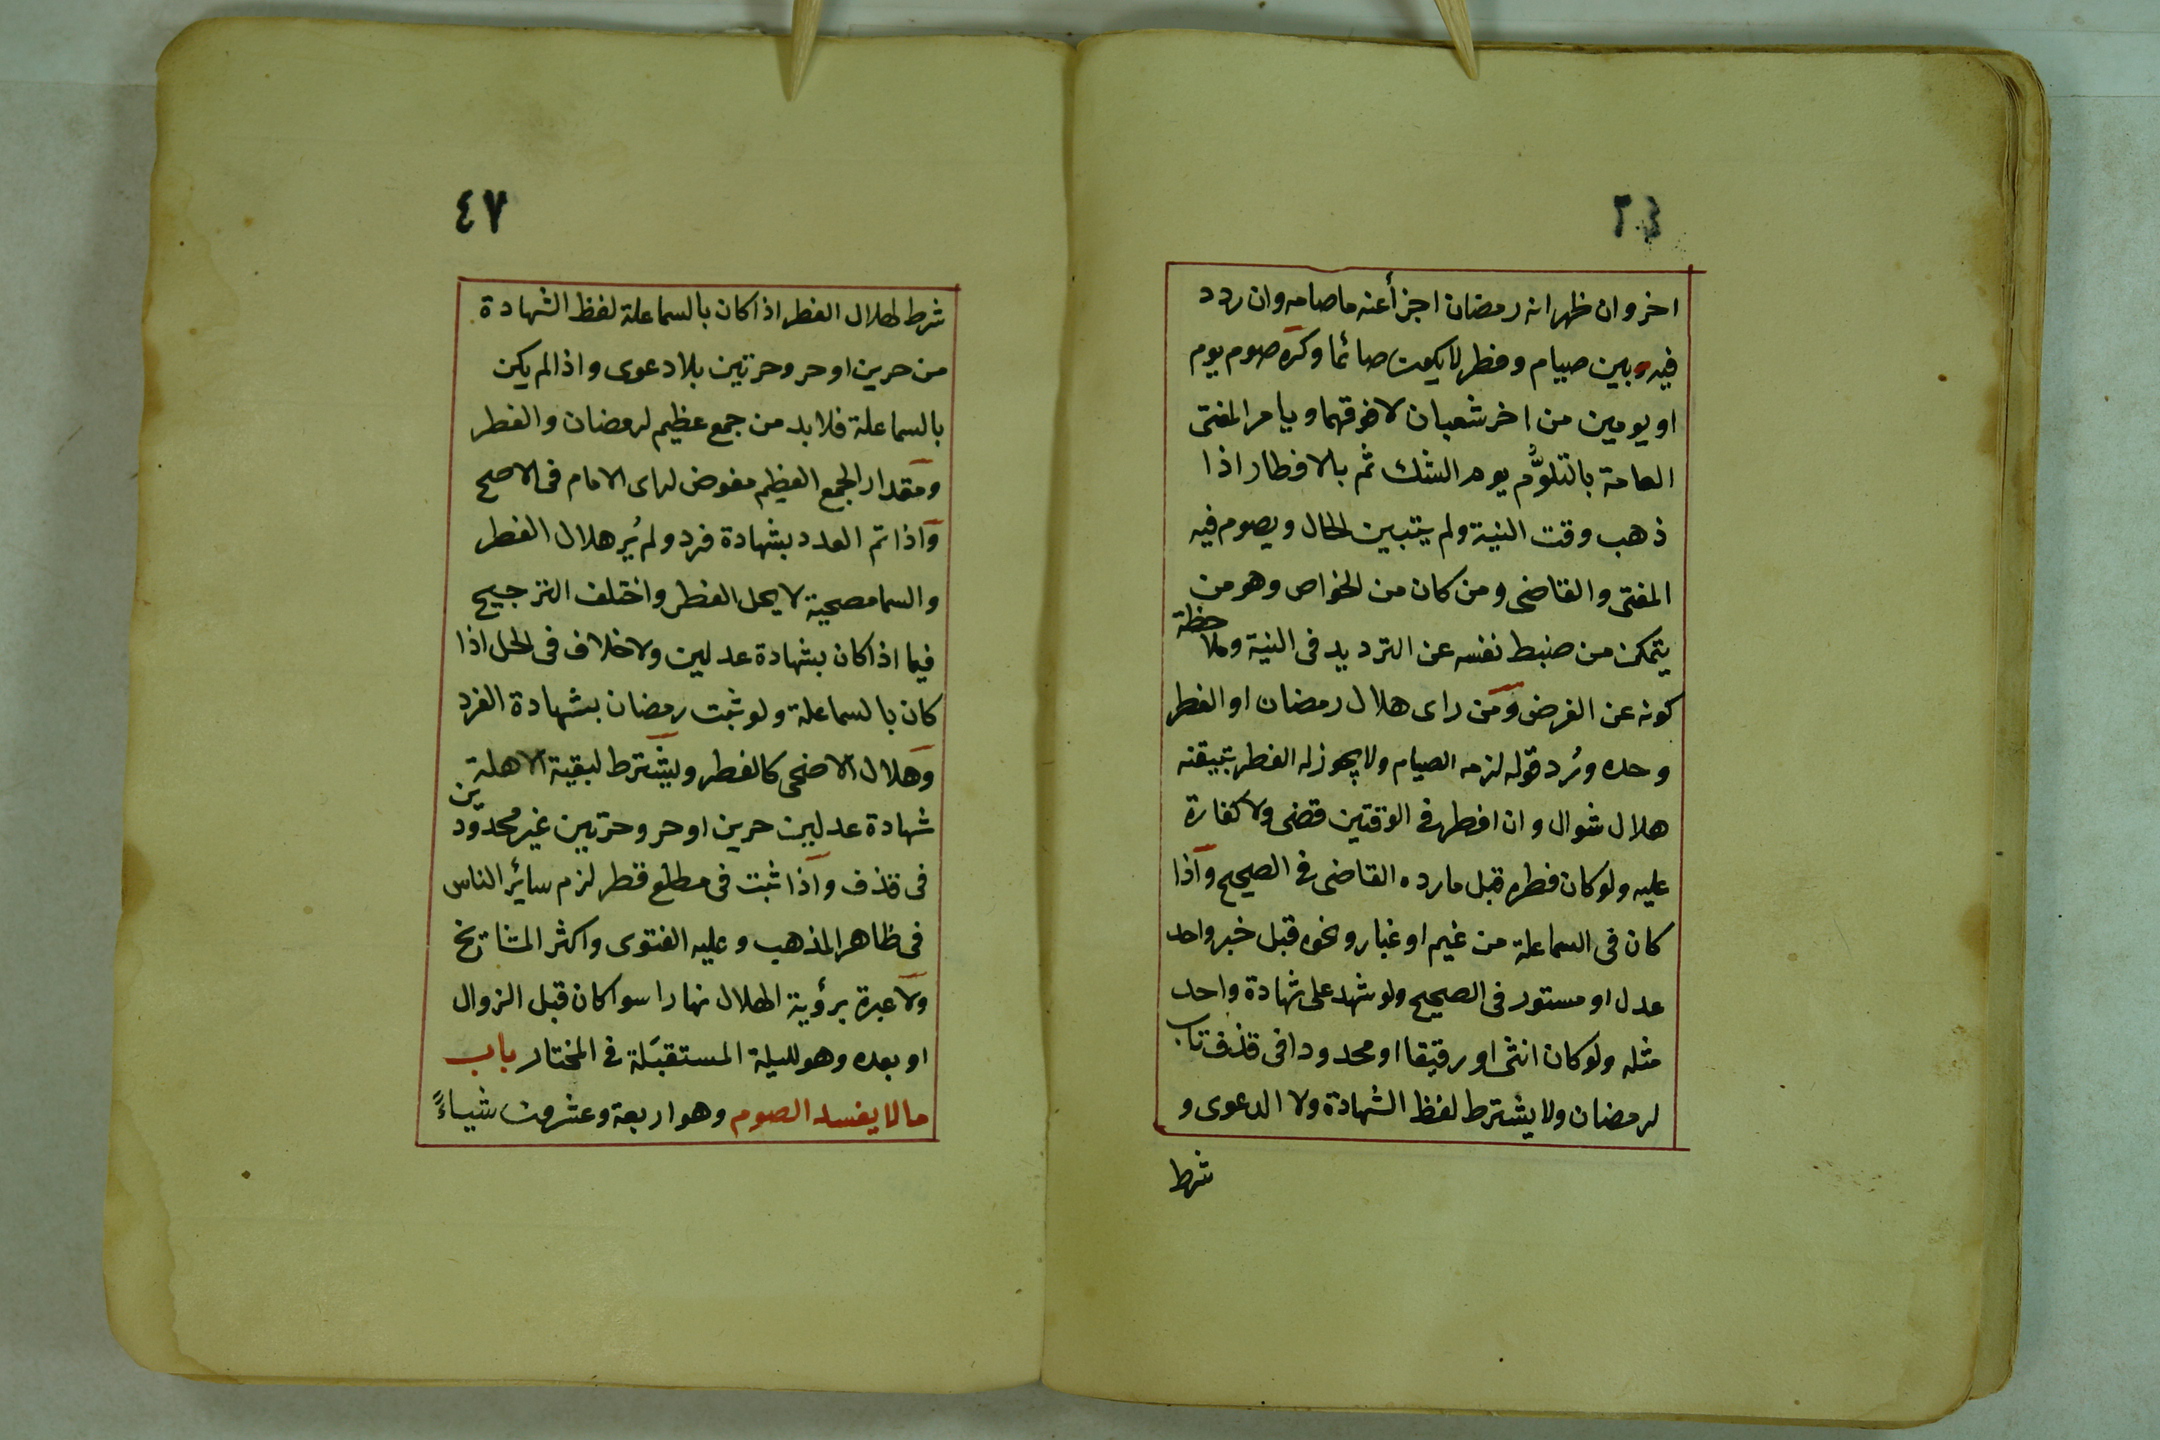 اخر وان ظهر انه رمضان اجزأ عنه ما صامه وان ردد
فيه وبين صيام وفطر لا يكون صائما وكره صوم يوم
او يومين من اخر شعبان لا فوقهما ويامر المفتى
العامة بالتلوُّم يوم الشك ثم بالافطار اذا
ذهب وقت النية ولم يتبين الحال ويصوم فيه
المفتى والقاضى ومن كان من الخواص وهو من
يتمكن من ضبط نفسه عن الترديد فى النية وملاحظة
كونه عن الفرض ومن راى هلال رمضان او الفطر
وحده ورُد قوله لزمه الصيام ولا يجوز له الفطر بتيقنه
هلال شوال وان افطر فى الوقتين قضى ولا كفارة
عليه ولو كان فطره قبل ما رده القاضى فى الصحيح واذا
كان فى السما علة من غيم او غبار ونحوه قبل خبر واحد
عدل او مستور فى الصحيح ولو شهد على شهادة واحد
مثله ولو كان انثى او رقيقا او محدودا فى قذف تاب
لرمضان ولا يشترط لفظ الشهادة ولا الدعوى و
شرط
٤٧
شرط لهلال الفطر اذا كان بالسما علة لفظ الشهادة
من حرين او حر وحرتين بلا دعوى واذا لم يكن
بالسما علة فلا بد من جمع عظيم لرمضان والفطر
ومقدار الجمع العظيم مفوض لراى الامام فى الاصح
واذا تم العدد بشهادة فرد ولم يُر هلال الفطر
والسما مصحية لا يحل الفطر واختلف الترجيح
فيما اذا كان بشهادة عدلين ولا خلاف فى الحل اذا
كان بالسما علة ولو ثبت رمضان بشهادة الفرد
وهلال الاضحى كالفطر ويشترط لبقية الاهلة
شهادة عدلين حرين او حر وحرتين غير محدودين
فى قذف واذا ثبت فى مطلع قطر لزم سائر الناس
فى ظاهر المذهب وعليه الفتوى واكثر المشائخ
ولا عبرة برؤية الهلال نهارا سوا كان قبل الزوال
او بعده وهو لليلة المستقبَلة فى المختار باب
ما لا يفسد الصوم وهو اربعة وعشرون شياءً